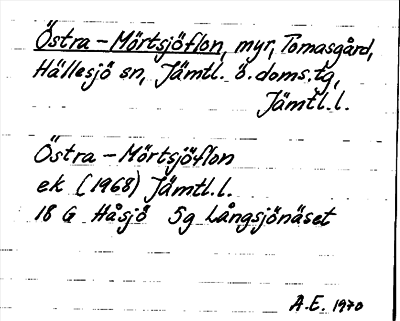 Östra-Mörtsjöflon, myr, Tomasgård,
Hällesjö sn, Jämtl. ö. doms. tg,
Jämtl.l.
Östra-Mörtsjöflon
ek (1968) Jämtl.l.
18 G Håsjö 5g Långsjönäset
A.E. 1970